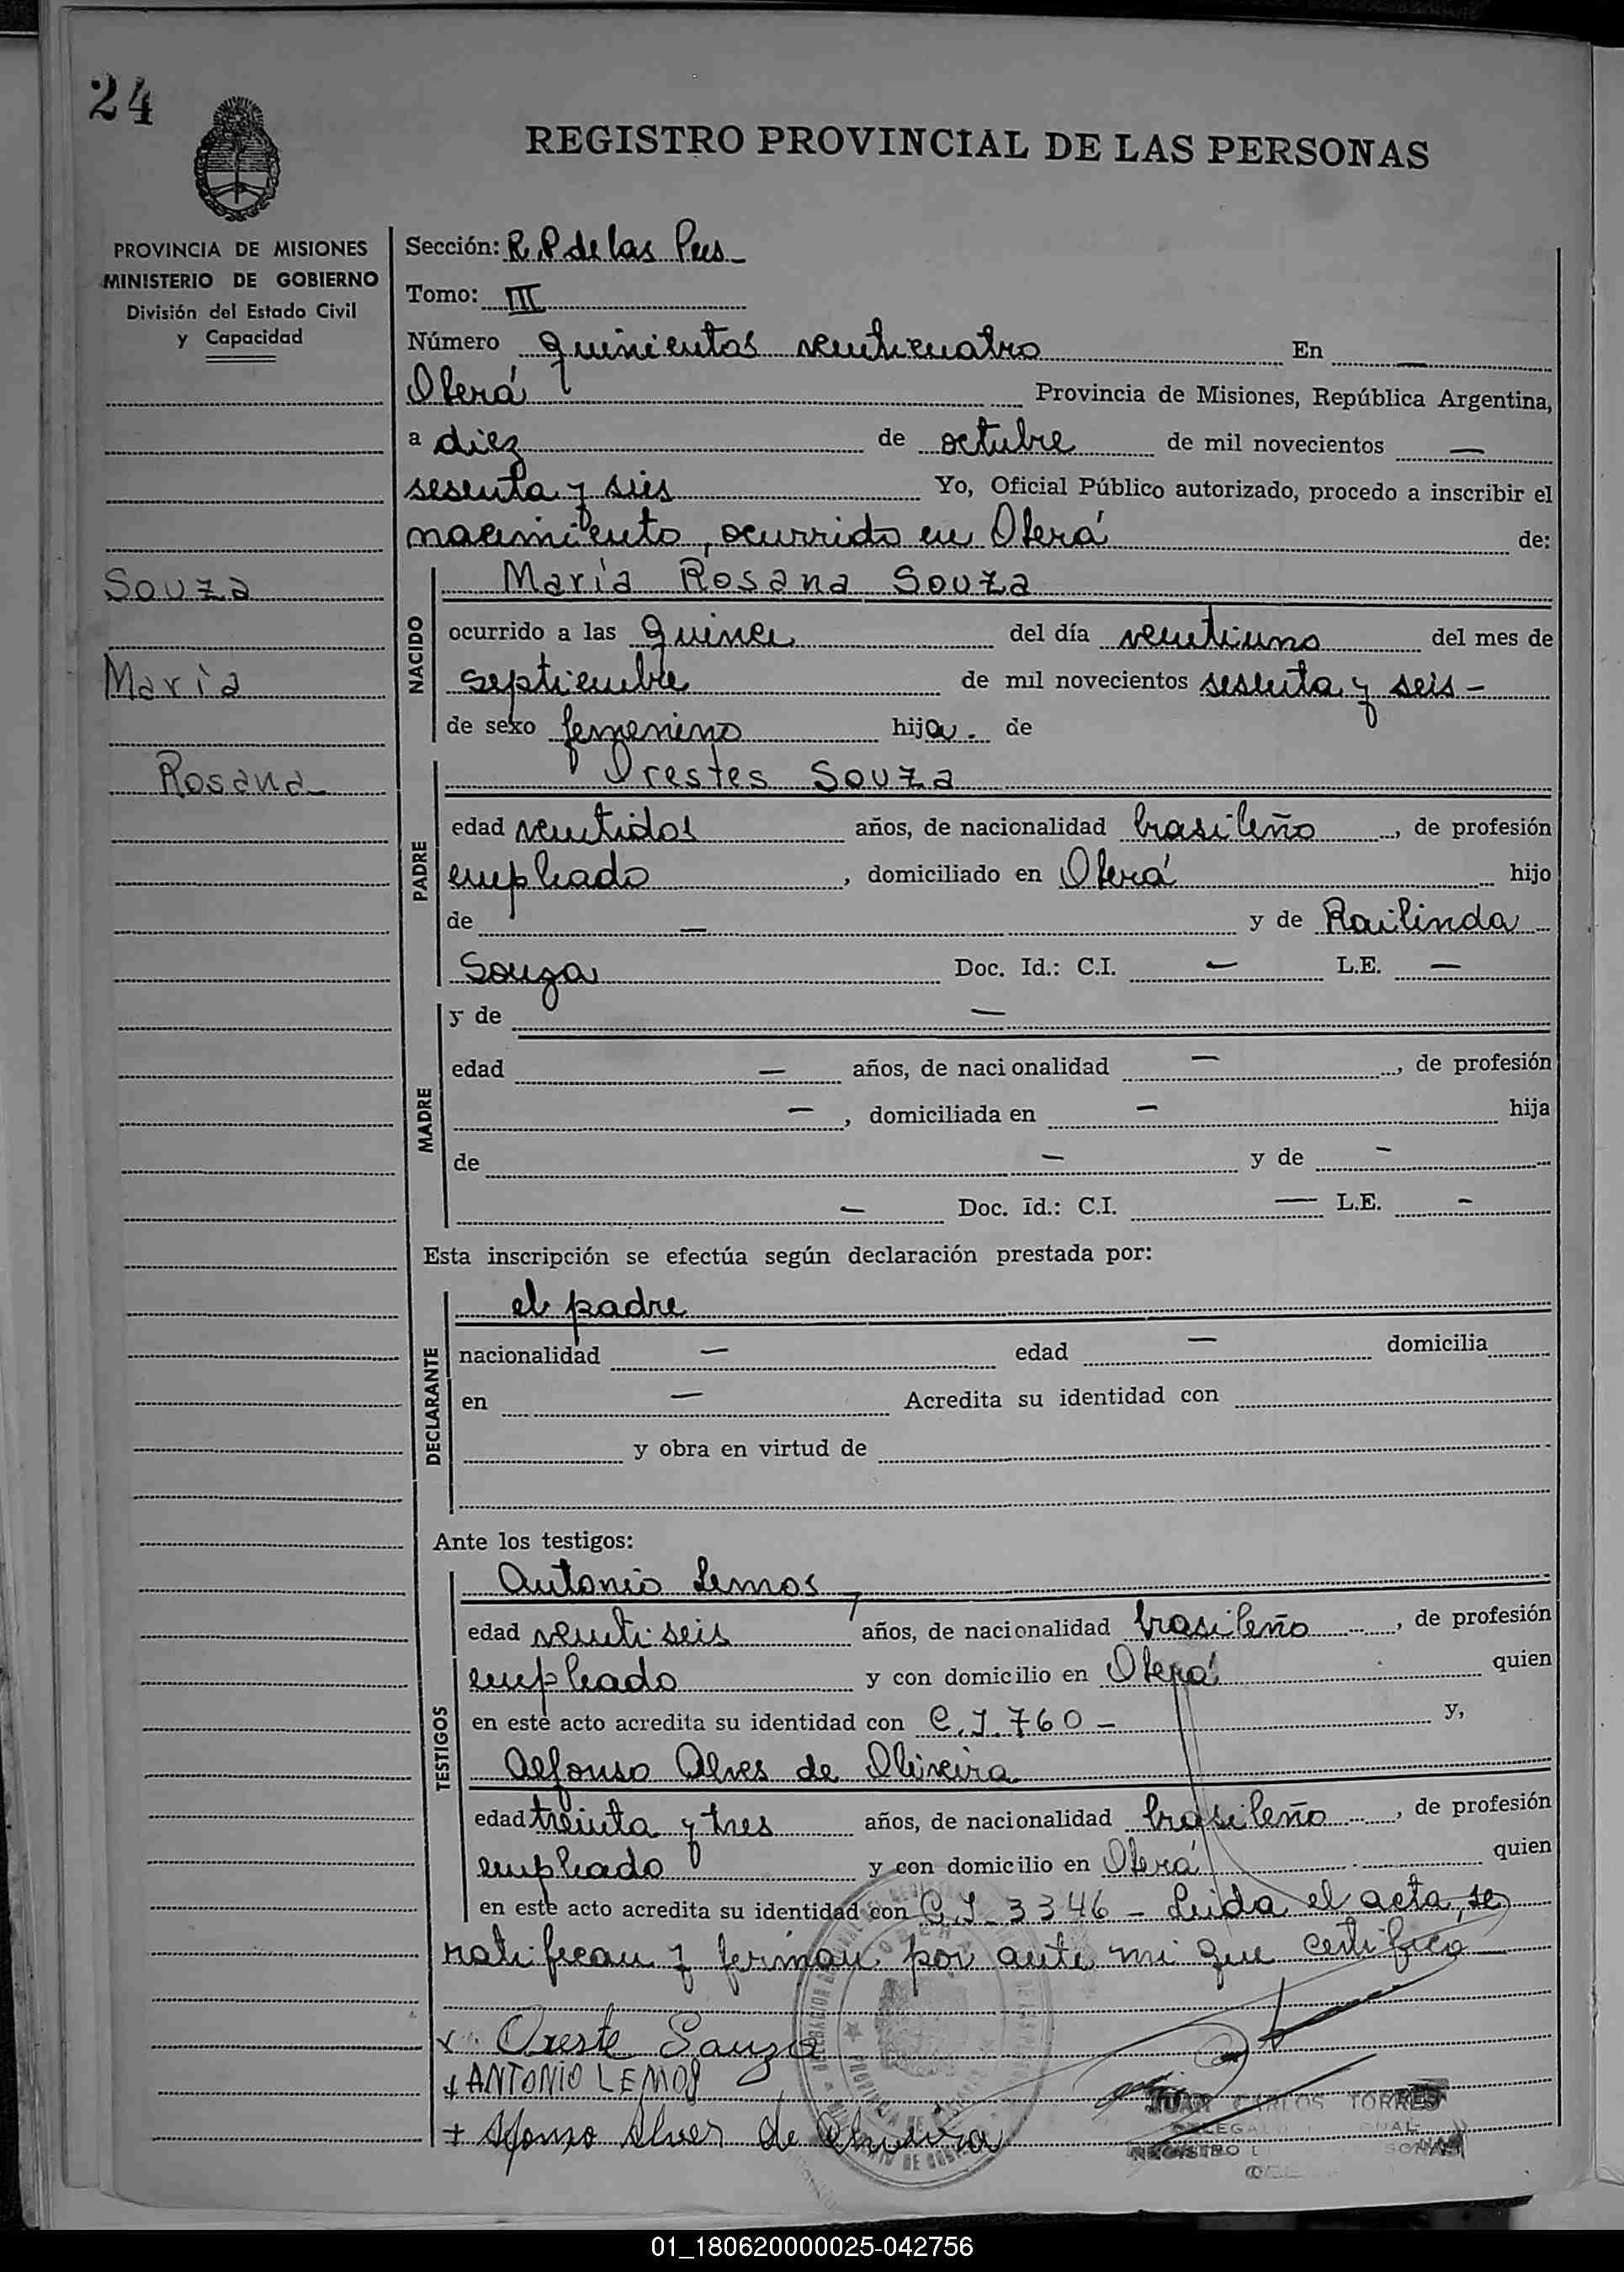 24
REGISTRO PROVINCIAL DE LAS PERSONAS
PROVINCIA DE MISIONES
MINISTERIO DE GOBIERNO
División del Estado Civil
y Capacidad
Souza
María
Rosana
Sección: R.P. de las Pers
Tomo: III
Número quinientos venticuatro En —
Oberá Provincia de Misiones, República Argentina,
a diez de octubre de mil novecientos —
sesenta y seis Yo, Oficial Público autorizado, procedo a inscribir el
nacimiento, ocurrido en Oberá de:
NACIDO
María Rosana Souza
ocurrido a las quince del día ventiuno del mes de
septiembre de mil novecientos sesenta y seis -
de sexo femenino hija. de
PADRE
Orestes Souza
edad ventidos años, de nacionalidad brasileño, de profesión
empleado, domiciliado en Oberá hijo
de — y de Railinda
Souza Doc. Id.: C.I. — L.E. —
MADRE
y de —
edad — años, de nacionalidad —, de profesión
—, domiciliada en — hija
de — y de —
— Doc. Id.: C.I. — L.E. —
Esta inscripción se efectúa según declaración prestada por:
DECLARANTE
el padre
nacionalidad — edad — domicilia
en — Acredita su identidad con
y obra en virtud de
Ante los testigos:
TESTIGOS
Antonio Lemos,
edad venti seis años, de nacionalidad brasileño, de profesión
empleado y con domicilio en Oberá quien
en este acto acredita su identidad con C.I. 760 - y,
Alfonso Alves de Oliveira
edad treinta y tres años, de nacionalidad brasileño, de profesión
empleado y con domicilio en Oberá quien
en este acto acredita su identidad con C.I. 3346 - Leida el acta, se
ratifican y firman por ante mi que certifico
x Oreste Sauza
+ ANTONIO LEMOS
+ Afonso Alves de Oliveira
JUAN CARLOS TORRES
REGISTRO
01_180620000025-042756